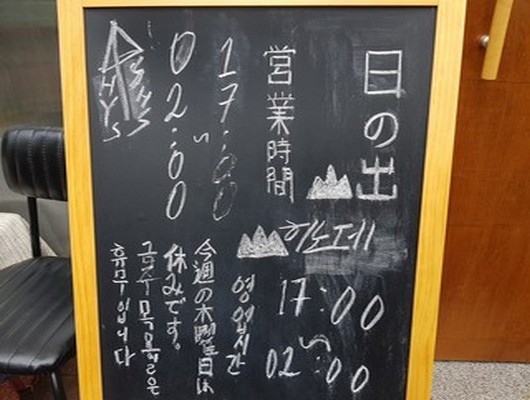 日の出
営業時間
17:00
〜
02:00
히노데
영업시간
17:00
〜
02:00
今週の木曜日は
休みです。
금주 목요일은
휴무입니다